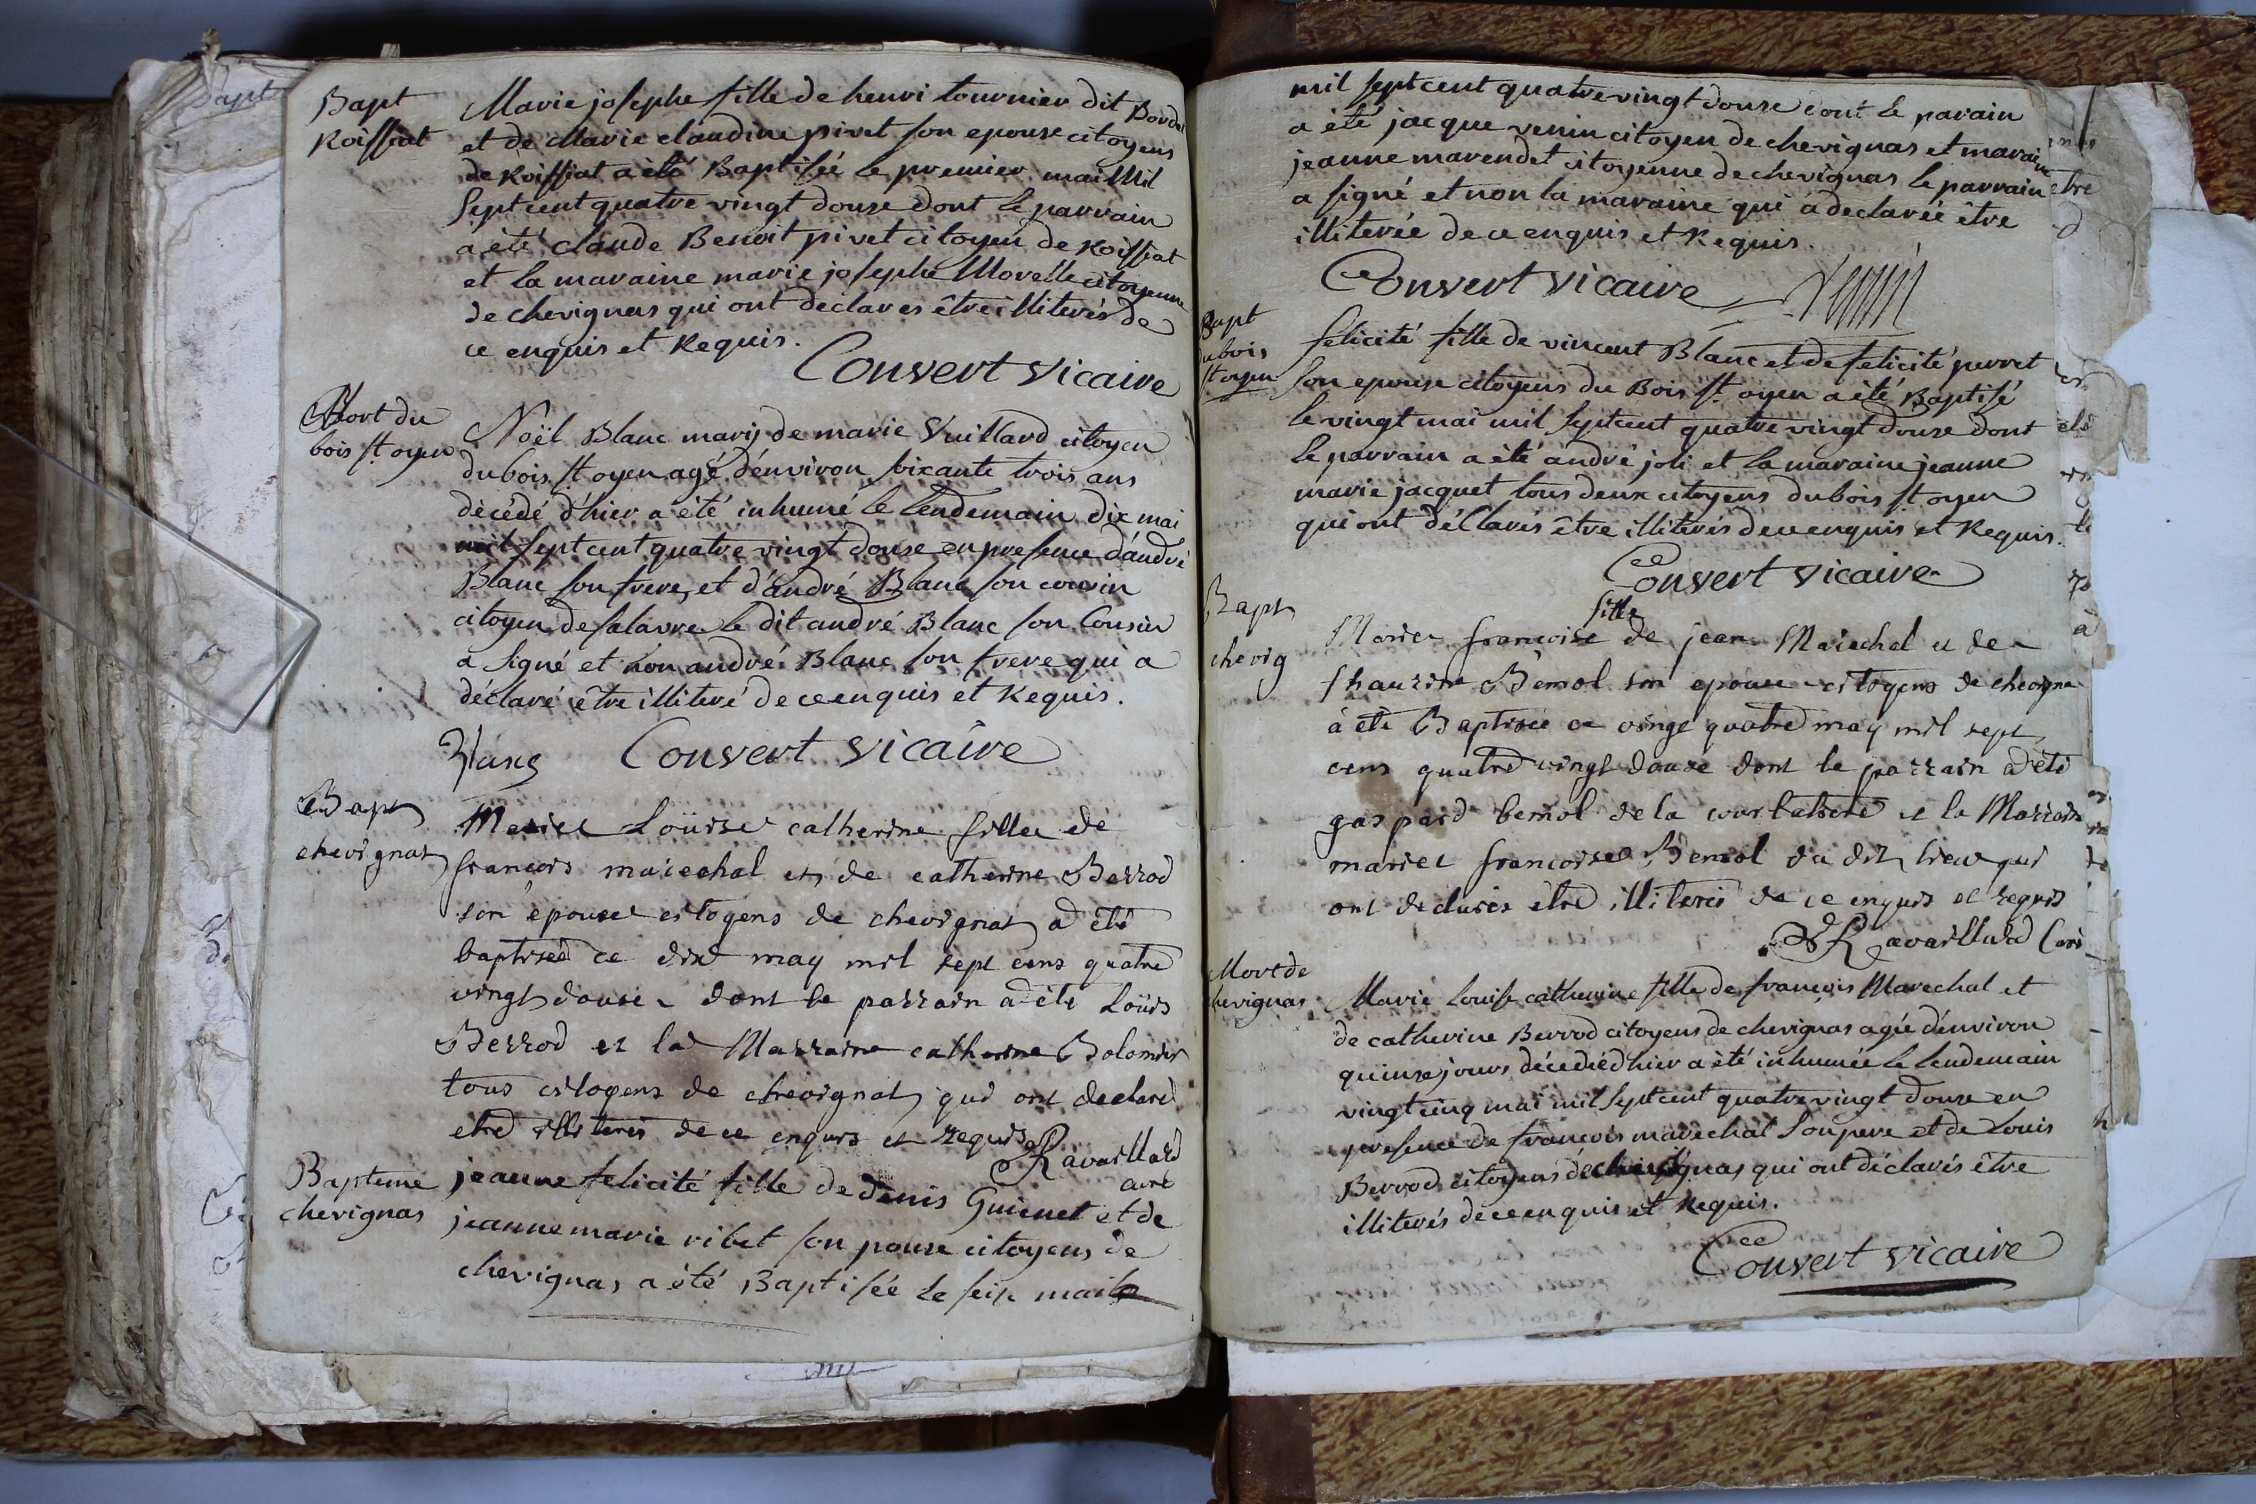 Bapt
Roissiat
Marie josephe fille de henri tournier dit Bordel
et de Marie claudine pivet son epouse citoyens
de Roissiat a été Baptisée le premier mai Mil
Sept cent quatre vingt douze dont le parrain
a été claude Benoit pivet citoyen de Roissiat
et la maraine marie josephe Morelle citoyenne
de chevignas qui ont declares être illiterés de
ce enquis et Requis.
Convert vicaire
Mort du
bois st oyen
Noël Blanc marij de marie Vuillard citoyen
du bois st oyen agé d'environ soixante trois ans
décédé d'hier a été inhumé le lendemain dix mai
mil sept cent quatre vingt douze en presence d'andré
Blanc son frere, et d'andré Blanc son cousin
citoyen de salavre le dit andré Blanc son Cousin
a signé et non andré Blanc son frere qui a
déclaré être illiteré de ce enquis et Requis.
Blanc Convert vicaire
Bapt
chevignat
Marie Loüise catherine fille de
françois marechal et de catherine Berrod
son epouse citoyens de chevignat a été
baptisée ce dix may mil sept cens quatre
vingt douse dont le parrain a été Loüis
Berrod et la Marraine catherine Bolomier
tous citoyens de chevignat qui ont declaré
etre illiteres de ce enquis et requis
Ravaillard
curé
Bapteme
chevignas
jeanne felicité fille de denis Guienet et de
jeanne marie ribet son pouse citoyens de
chevignas a été Baptisée le seix mai
mil sept cent quatre vingt douze dont le parain
a été jacque venin citoyen de chevignas et maraine
jeanne marendet citoyenne de chevignas le parrain
a signé et non la maraine qui a declarée être
illiterée de ce enquis et Requis.
Convert vicaire Venin
Bapt
du bois
st oyen
felicité fille de vincent Blanc et de felicité perret
son epouse citoyens du Bois st oyen a été Baptisé
le vingt mai mil sept cent quatre vingt douze dont
le parrain a été andré joli et la maraine jeanne
marie jacquet tous deux citoyens du bois st oyen
qui ont déclarés être illiterés de ce enquis et Requis.
Convert vicaire
Bapt
chevig
fille
Marie françoise de jean Marechal et de
Bemol son epouse citoyens de chevigna
a été Baptisée ce vingt quatre may mil sept
cens quatre vingt douze dont le parrain a été
gaspard bemol de la courbatiere et la Marraine
marie françoise Bemol du dit lieu qui
ont declarés être illiterés de ce enquis et requis
Ravaillard Curé
Mort de
chevignas
Marie Louise catherine fille de françois Marechal et
de catherine Berrod citoyens de chevignas agée d'environ
quinze jours décedéé d'hier a été inhumée le lendemain
vingt cinq mai mil sept cent quatre vingt douze en
presence de françois marechal son pere et de Louis
Berrod citoyens de chevignas qui ont déclarés être
illiterés de ce enquis et Requis.
Convert vicaire